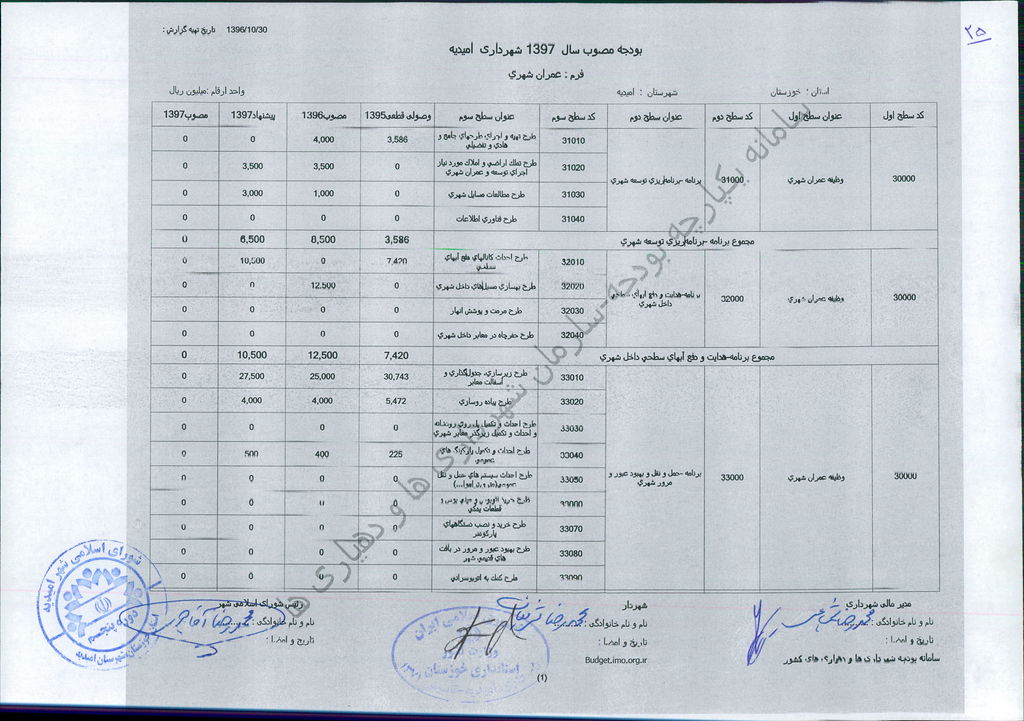 ۲۵
تاریخ تهیه گزارش : 1396/10/30
بودجه مصوب سال 1397 شهرداری امیدیه
فرم : عمران شهري
استان : خوزستان شهرستان : امیدیه واحد ارقام :میلیون ریال
کد سطح اول عنوان سطح اول کد سطح دوم عنوان سطح دوم کد سطح سوم عنوان سطح سوم وصولی قطعی1395 مصوب1396 پیشنهاد1397 مصوب1397
30000 وظیفه عمران شهري 31000 برنامه -برنامه‌ریزي توسعه شهري
31010 طرح تهیه و اجراي طرحهاي جامع و هادي و تفصیلي 3,586 4,000 0 0
31020 طرح تملک اراضي و املاک مورد نیاز اجراي توسعه و عمران شهري 0 3,500 3,500 0
31030 طرح مطالعات مسایل شهري 0 1,000 3,000 0
31040 طرح فناوري اطلاعات 0 0 0 0
مجموع برنامه -برنامه‌ریزي توسعه شهري 3,586 8,500 6,500 0
30000 وظیفه عمران شهري 32000 برنامه-هدایت و دفع آبهاي سطحي داخل شهري
32010 طرح احداث کانالهاي دفع آبهاي سطحي 7,420 0 10,500 0
32020 طرح بهسازي مسیل‌هاي داخل شهري 0 12,500 0 0
32030 طرح مرمت و پوشش انهار 0 0 0 0
32040 طرح حفرچاه در معابر داخل شهري 0 0 0 0
مجموع برنامه-هدایت و دفع آبهاي سطحي داخل شهري 7,420 12,500 10,500 0
30000 وظیفه عمران شهري 33000 برنامه -حمل و نقل و بهبود عبور و مرور شهري
33010 طرح زیرسازي، جدولگذاري و آسفالت معابر 30,743 25,000 27,500 0
33020 طرح پیاده روسازي 5,472 4,000 4,000 0
33030 طرح احداث و تکمیل پل روي رودخانه و احداث و تکمیل زیرگذر معابر شهري 0 0 0 0
33040 طرح احداث و تکمیل پارکینگ هاي عمومي 225 400 500 0
33050 طرح احداث سیستم هاي حمل و نقل 0 0 0 0
طرح خرید اتوبوس و میني بوس و قطعات یدکي 0 0 0 0
33070 طرح خرید و نصب دستگاههاي پارکومتر 0 0 0 0
33080 طرح بهبود عبور و مرور در بافت هاي قدیمي شهر 0 0 0 0
33090 طرح کمک به اتوبوسراني 0 0 0 0
سامانه یکپارچه بودجه-سازمان شهرداری ها و دهیاری ها
مدیر مالی شهرداری شهردار رئیس شورای اسلامی شهر
نام و نام خانوادگی : نام و نام خانوادگی : نام و نام خانوادگی :
تاریخ و امضا : تاریخ و امضا : تاریخ و امضا :
سامانه بودجه شهرداری ها و دهیاری های کشور Budget.imo.org.ir
(1)
شورای اسلامی شهر امیدیه
دوره پنجم
استانداری خوزستان